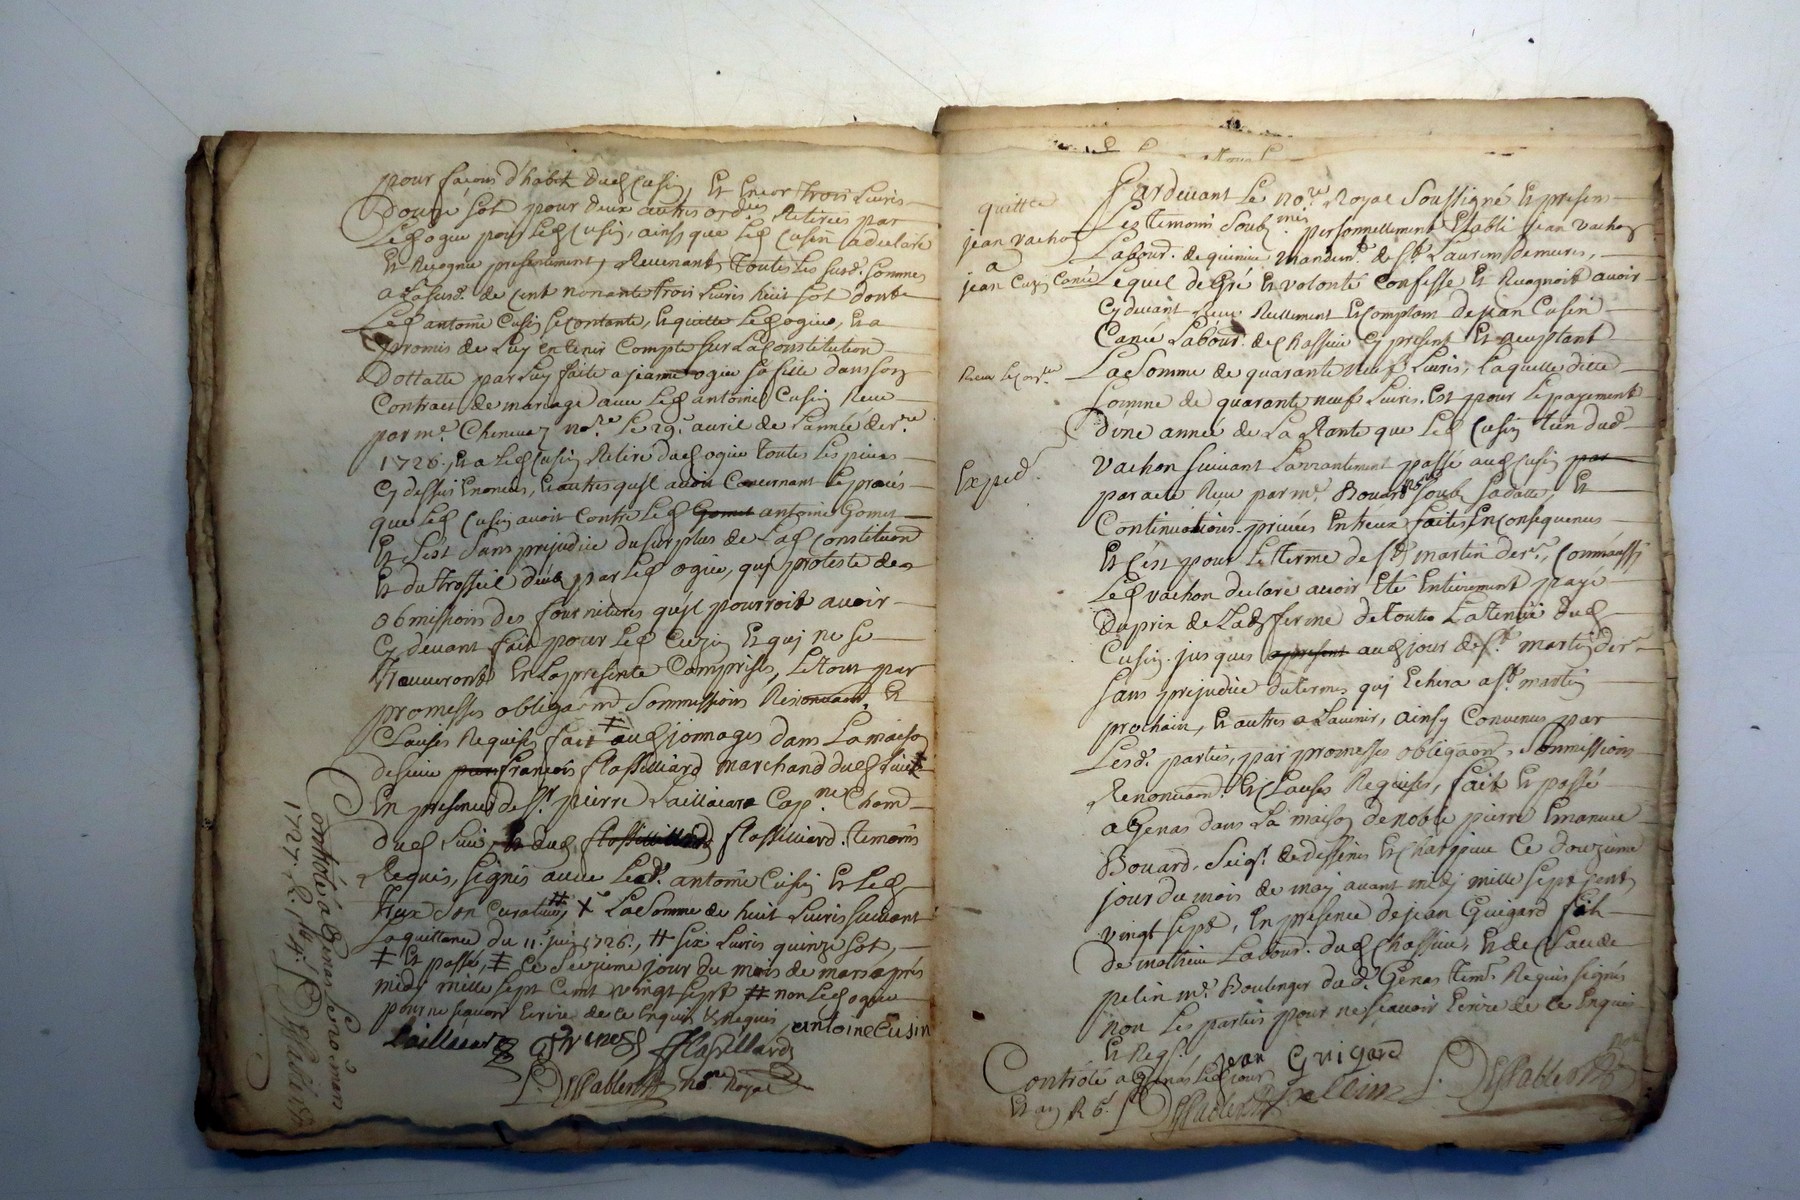 pour façons d'habit dud Cusin, Et Encor trois Livres
Douze sol pour deux autres ord.es Retirées par
Led ogier pour Led Cusin, ainsy que Led Cusin a declaré
Et Recognu presentement, Revenants Toutes Les susd. sommes
a La susd. de Cent nonante trois Livres huit sol dont
Led antoine Cusin se contante, Et quitte Led ogier, Et a
promis de Luy en tenir Compte sur La Constitution
Dottalle par Luy faite a jeanne ogier sa fille dans son
Contract de mariage avec Led antoine Cusin Receu
par m.e no.re Le 29.e avril de L'année der.re
1726, Et a Led Cusin Retiré dud ogier Toutes Les pieces
Cy dessus Enoncées, Et autres qu'il avoit Concernant Le procés
que Led Cusin avoit Contre Led antoine Gomet
Et C'est sans prejudice du surplus de Lad Constitution
Et du Trosseil deüe par Led ogier, quy proteste des
obmissions des fournitures qu'il pourroit avoir
Cy devant fait pour Led Cuzin Et quj ne se
trouveront En La presente Comprises, Le tout par
promesses obliga.on Soummissions Renonciaon, Et
Clauses Requises fait aud jonnages dans La maison
de sieur françois flassilliard marchand dud Lieu
En presence de s.r pierre Cap.ne
dud Lieu, flassilliard. Temoins
Requis, signés avec Led. antoine Cusin Et Led
son Curateur, La Somme de huit Livres suivant
La quittance du 11.e juin 1726, # six Livres quinze sol,
Et passé, Ce Seizieme jour du mois de mars aprés
midj mille sept Cent vingt sept # non Led ogier
pour ne sçavoir Ecrire de ce Enquis Et Requis
antoine Cusin
flasilliard
no.re Royal
Controlé a Genas Le 20 mars
1727
quittce
jean vachon
a
jean Cusin Canié
Exped.
Pardevant Le No.re Royal Soussigné Et presens
Les temoins Soub nés personnellement Etabli jean vachon
Labour. de mandem.t de S.t Laurens demeure,
Lequel de Gré Et volonté Confesse Et Recognoit avoir
Cy devant Receu Reellement Et Comptant de jean Cusin
Canié Labour. de Chassieu Cy present Et acceptant
La Somme de quarante neuf Livres, Laquelle ditte
somme de quarante neuf Livres, Est pour Le payement
D'une année de La Rante que Led Cusin tien dud
vachon suivant L'arrantement passé aud Cusin par
par acte Receu par m.e Bouard soub sa datte, Et
Continuations privées Entreux faites En consequence
Et C'est pour Le terme de S.t martin der.r, Comm'aussj
Led vachon declare avoir Eté Entierement payé
Du prix de Lad ferme de toute La tenüe dud
Cusin jusques apresent aud jour de S.t martin der.r
sans prejudice du terme quj Echera a S.t martin
prochain, Et autres a L'avenir, ainsy Convenu par
Lesd. parties, par promesses obligaons, Soummissions
Renonciaon. Et Clauses Requises, fait Et passé
a Genas dans La maison de noble pierre Emanuel
Bouard, Seig.r Et Ce douzieme
jour du mois de maj avant midj mille sept Cent
vingt sept, En presence de jean Guigard fils
De mathieu Labour. dud Chassieu, Et de Claude
pelin m.e Boulenger du d. Genas tem.s Requis signés
non Les parties pour ne sçavoir Ecrire de ce Enquis
Et Reqs.
jean Guigard
Controlé a Genas Led jour
pellin